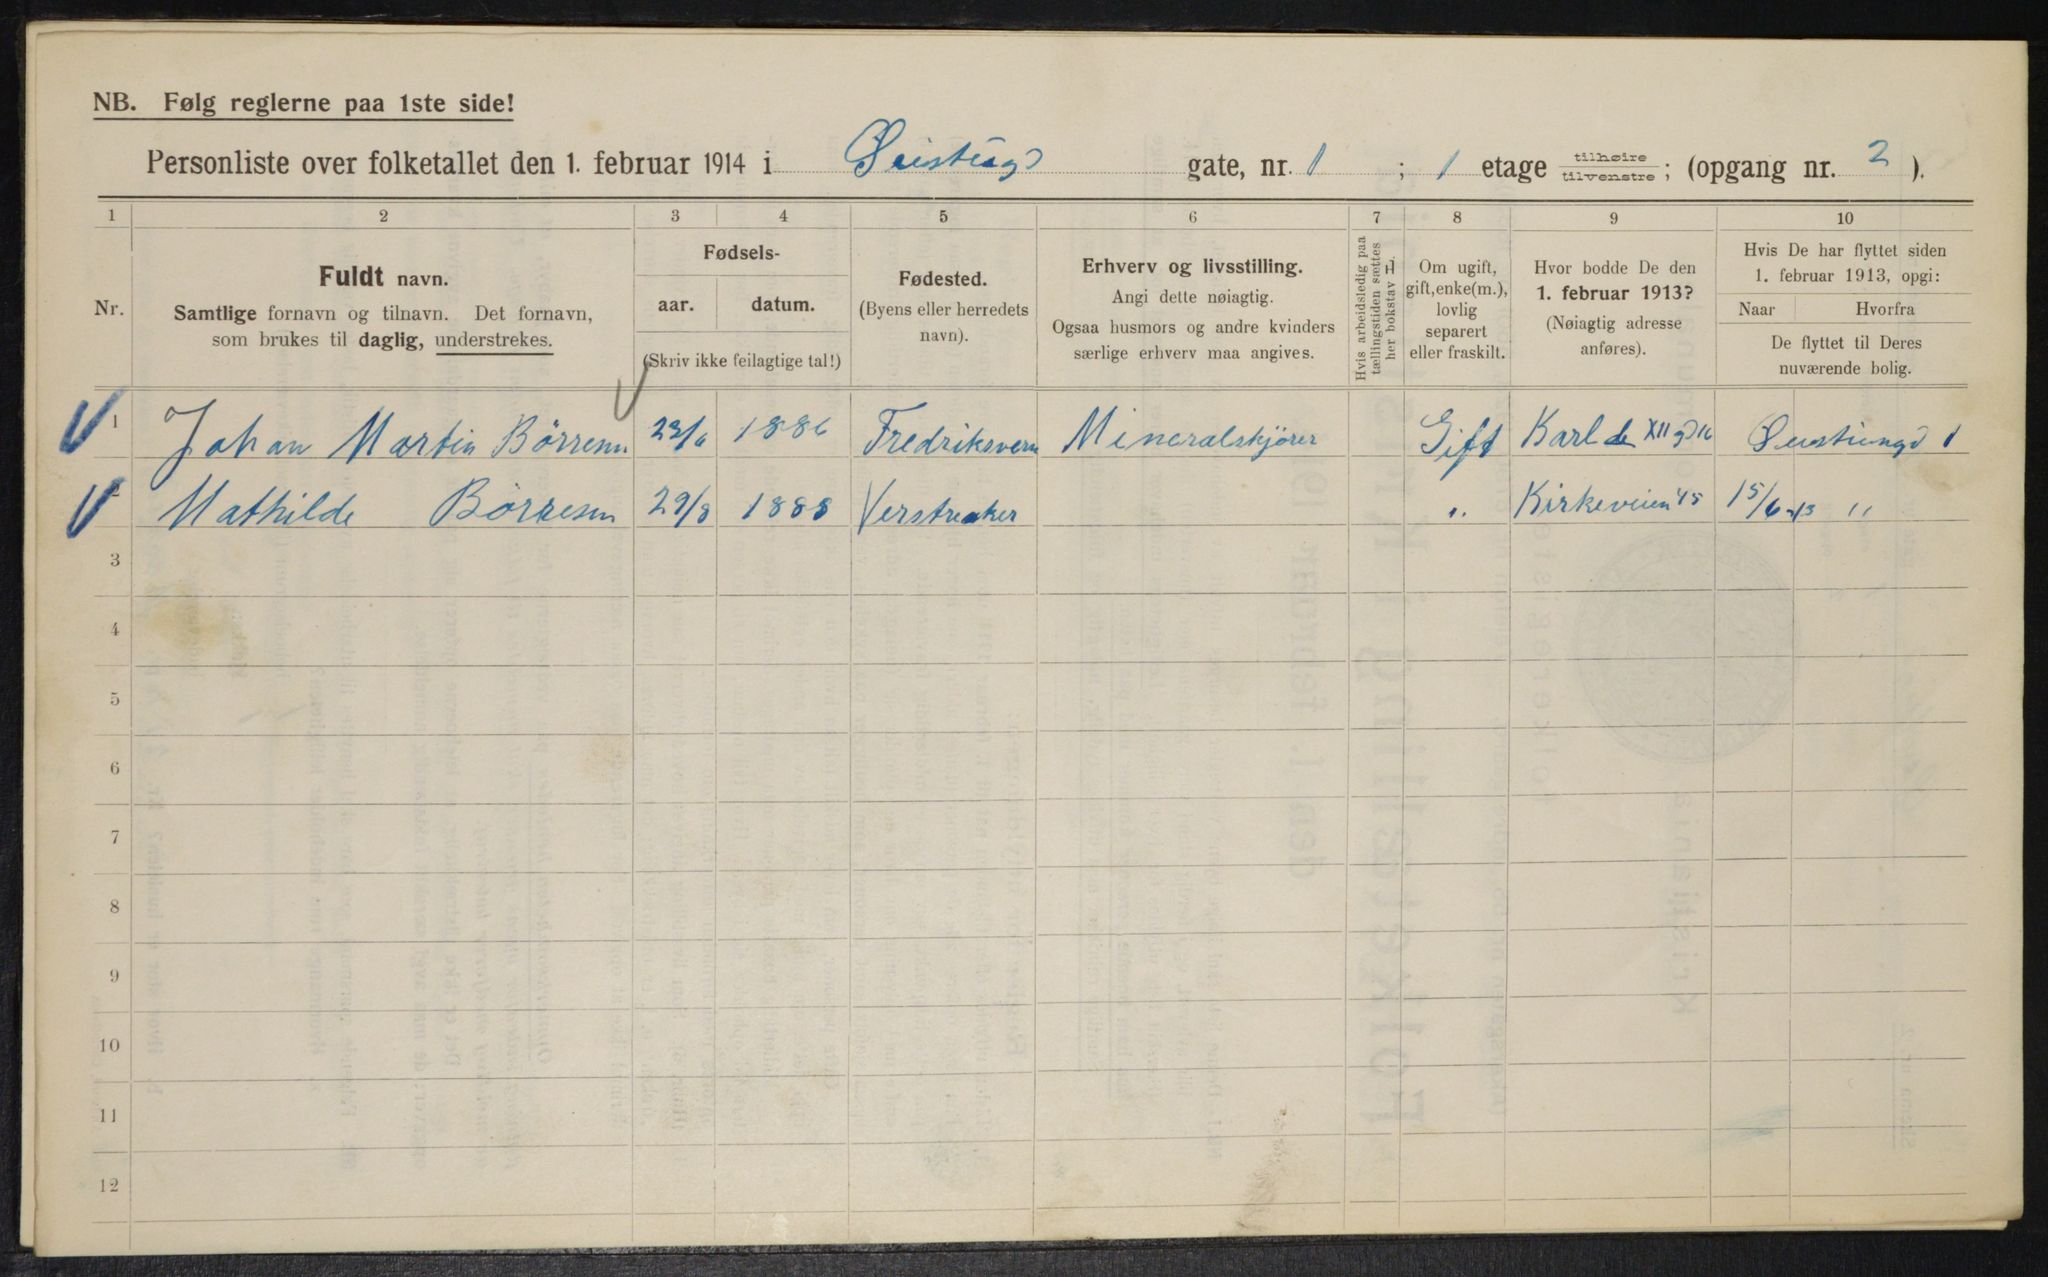 NB. Følg reglerne paa 1ste side!
Personliste over folketallet den 1. februar 1914 i gate, nr. 1 ; 1 etage tilhøire tilvenstre ; (opgang nr. 2 ).
1 2 3 4 5 6 7 8 9 10
Nr.
Fuldt navn.
Samtlige fornavn og tilnavn. Det fornavn,
som brukes til daglig, understrekes.
Fødsels-
aar. datum.
(Skriv ikke feilagtige tal!)
Fødested.
(Byens eller herredets
navn).
Erhverv og livsstilling.
Angi dette nøiagtig.
Ogsaa husmors og andre kvinders
særlige erhverv maa angives.
Hvis arbeidsledig paa
tællingstiden sættes
her bokstav L.
Om ugift,
gift, enke(m.),
lovlig
separert
eller fraskilt.
Hvor bodde De den
1. februar 1913?
(Nøiagtig adresse
anføres).
Hvis De har flyttet siden
1. februar 1913, opgi:
Naar Hvorfra
De flyttet til Deres
nuværende bolig.
1 Johan Martin Børresen 23/6 1886 Fredriksvern Mineralskjører Gift Karl de XII gd 16 1
2 Mathilde Børresen 29/8 1888 " Kirkeveien 45 15/6-13 "
3
4
5
6
7
8
9
10
11
12